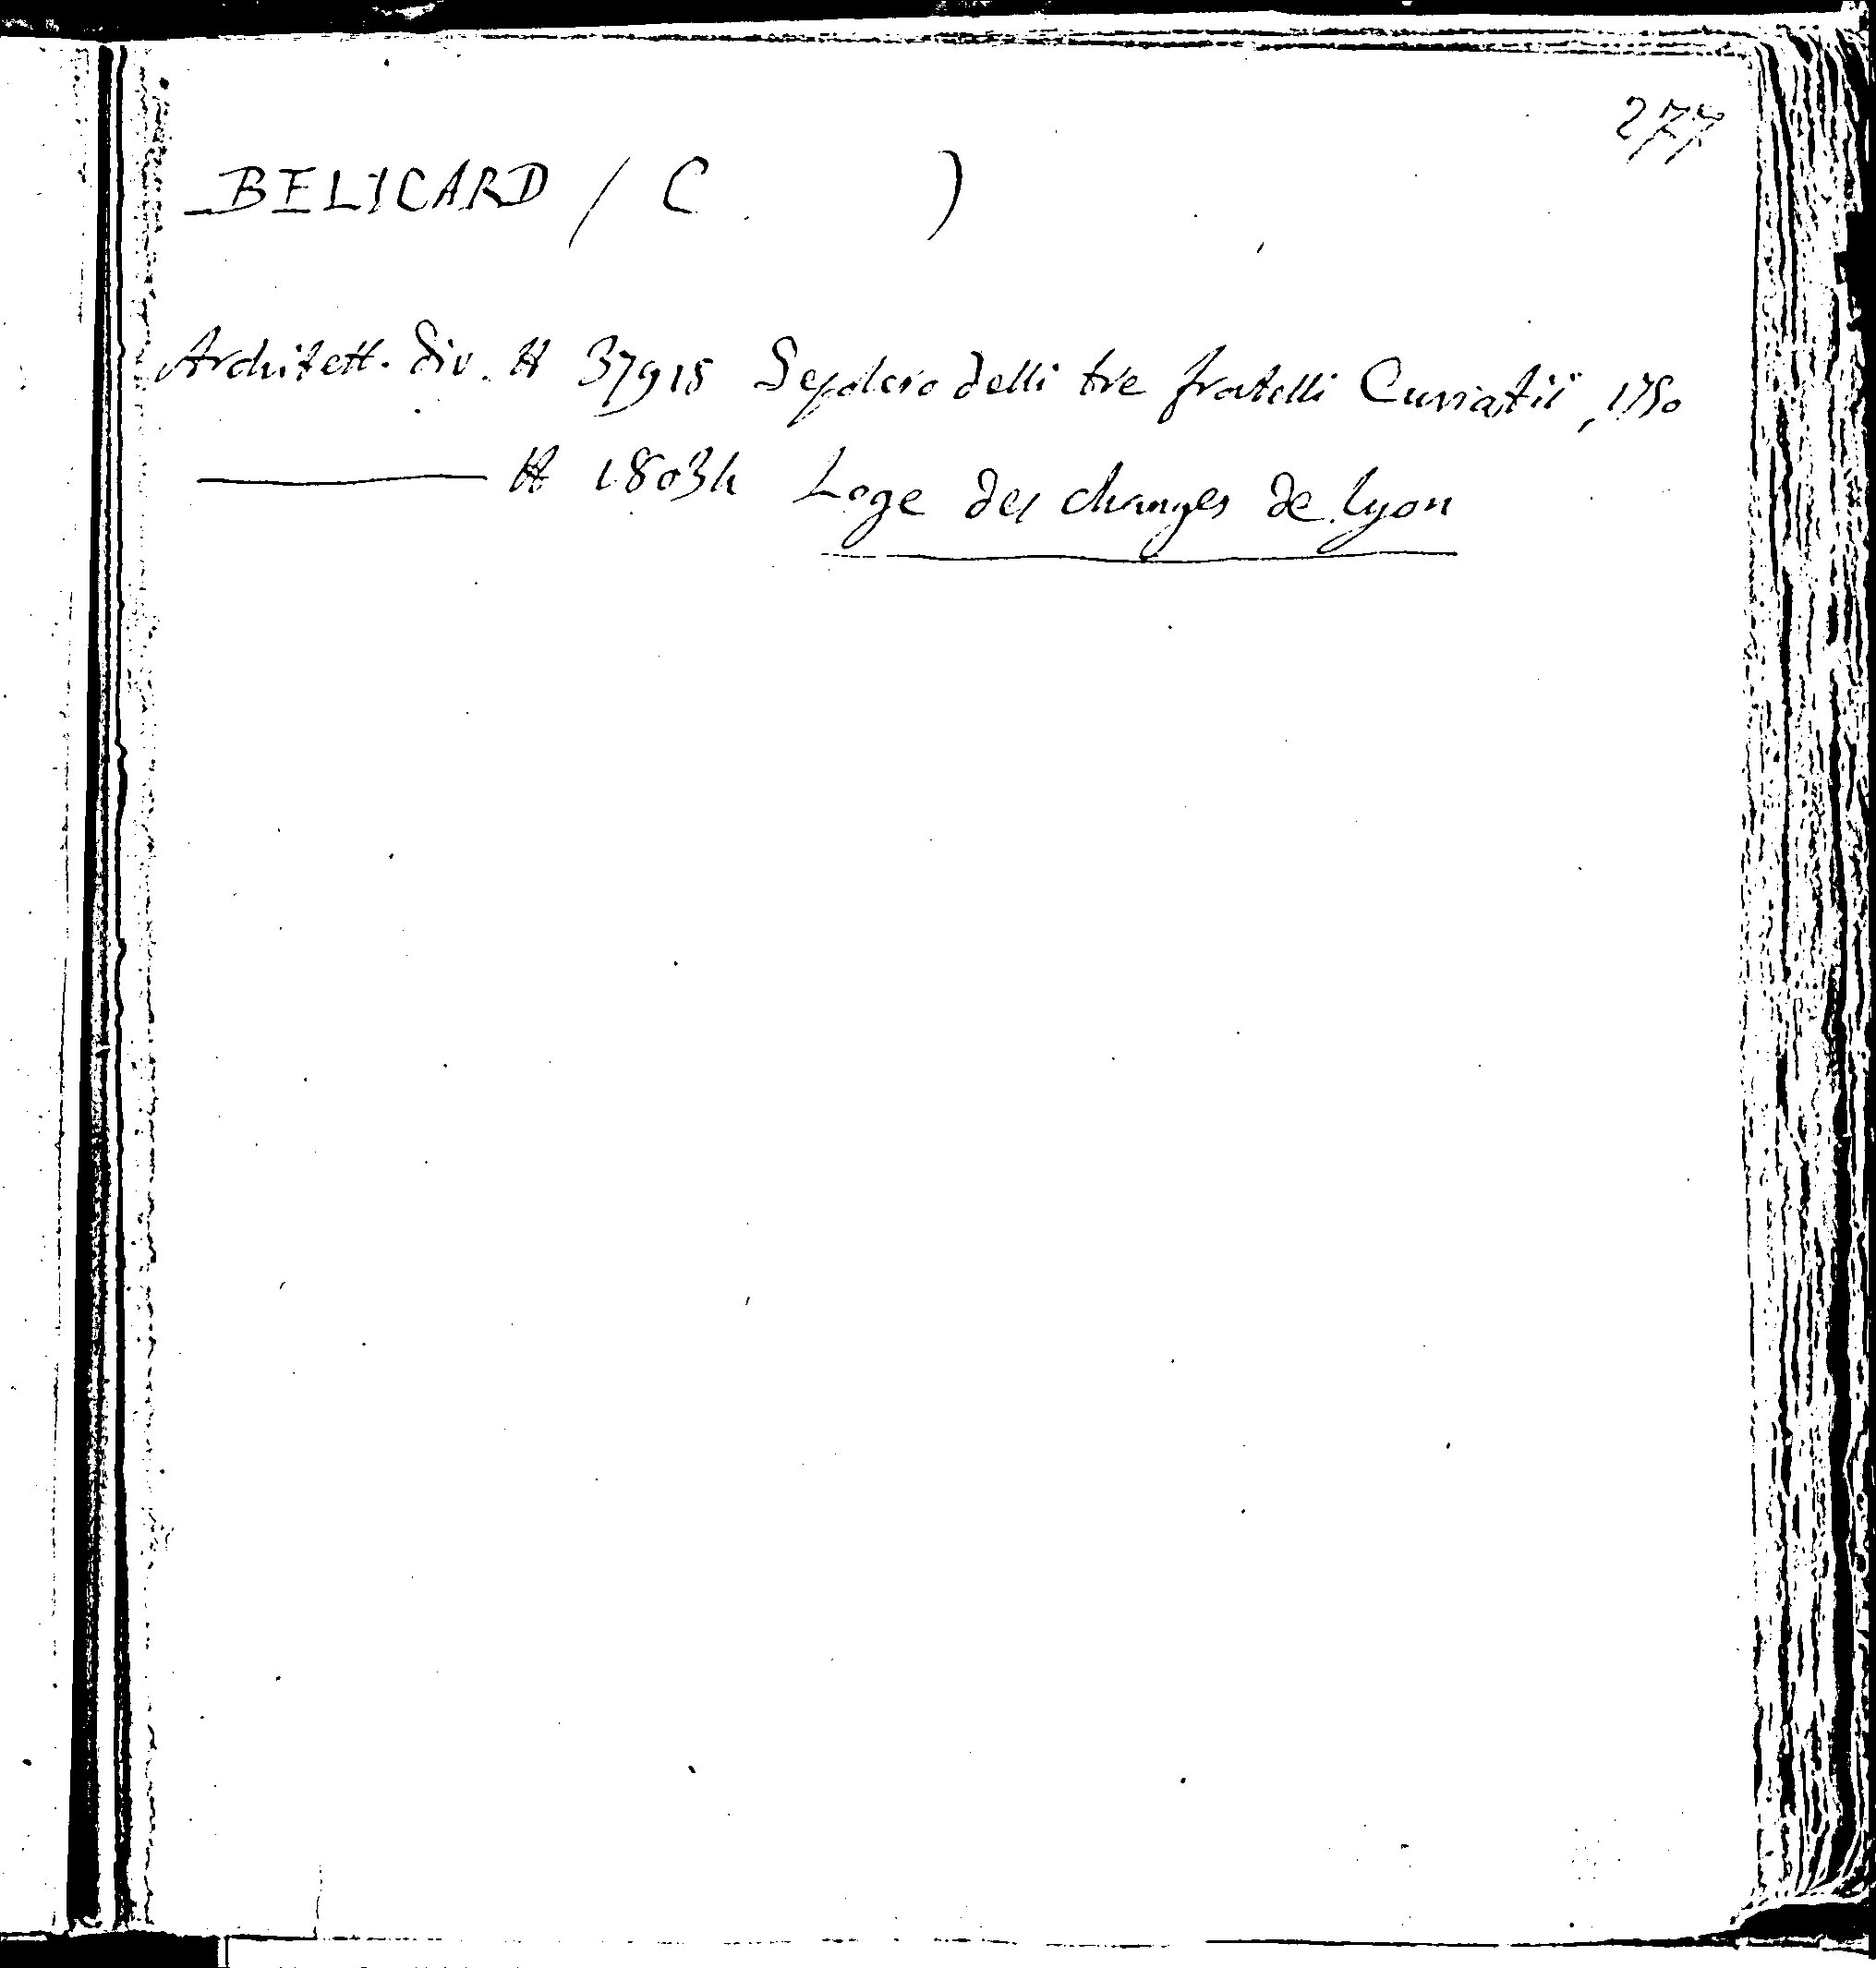 277
BELICARD / ( )
Architett. div. H 37915 Sepolcro delli tre fratelli Curiatii, 1750
H 18034 Loge des changes de Lyon